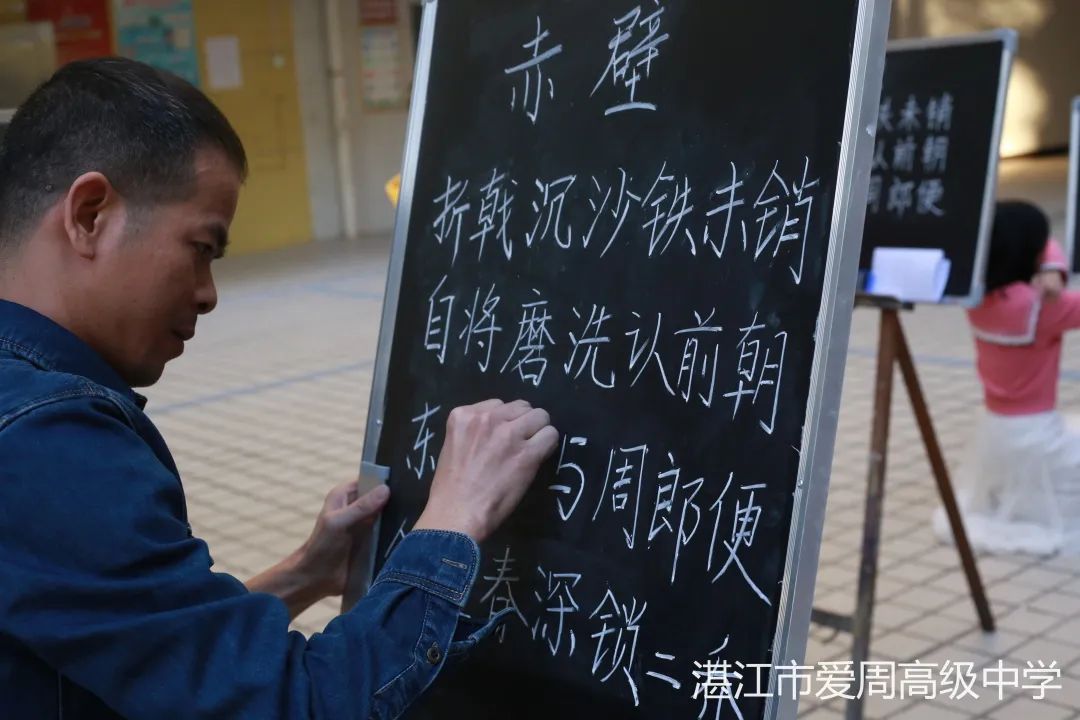 赤壁
折戟沉沙铁未销
自将磨洗认前朝
东 与周郎便
春深锁二乔
铁未销
认前朝
周郎便
湛江市爱周高级中学